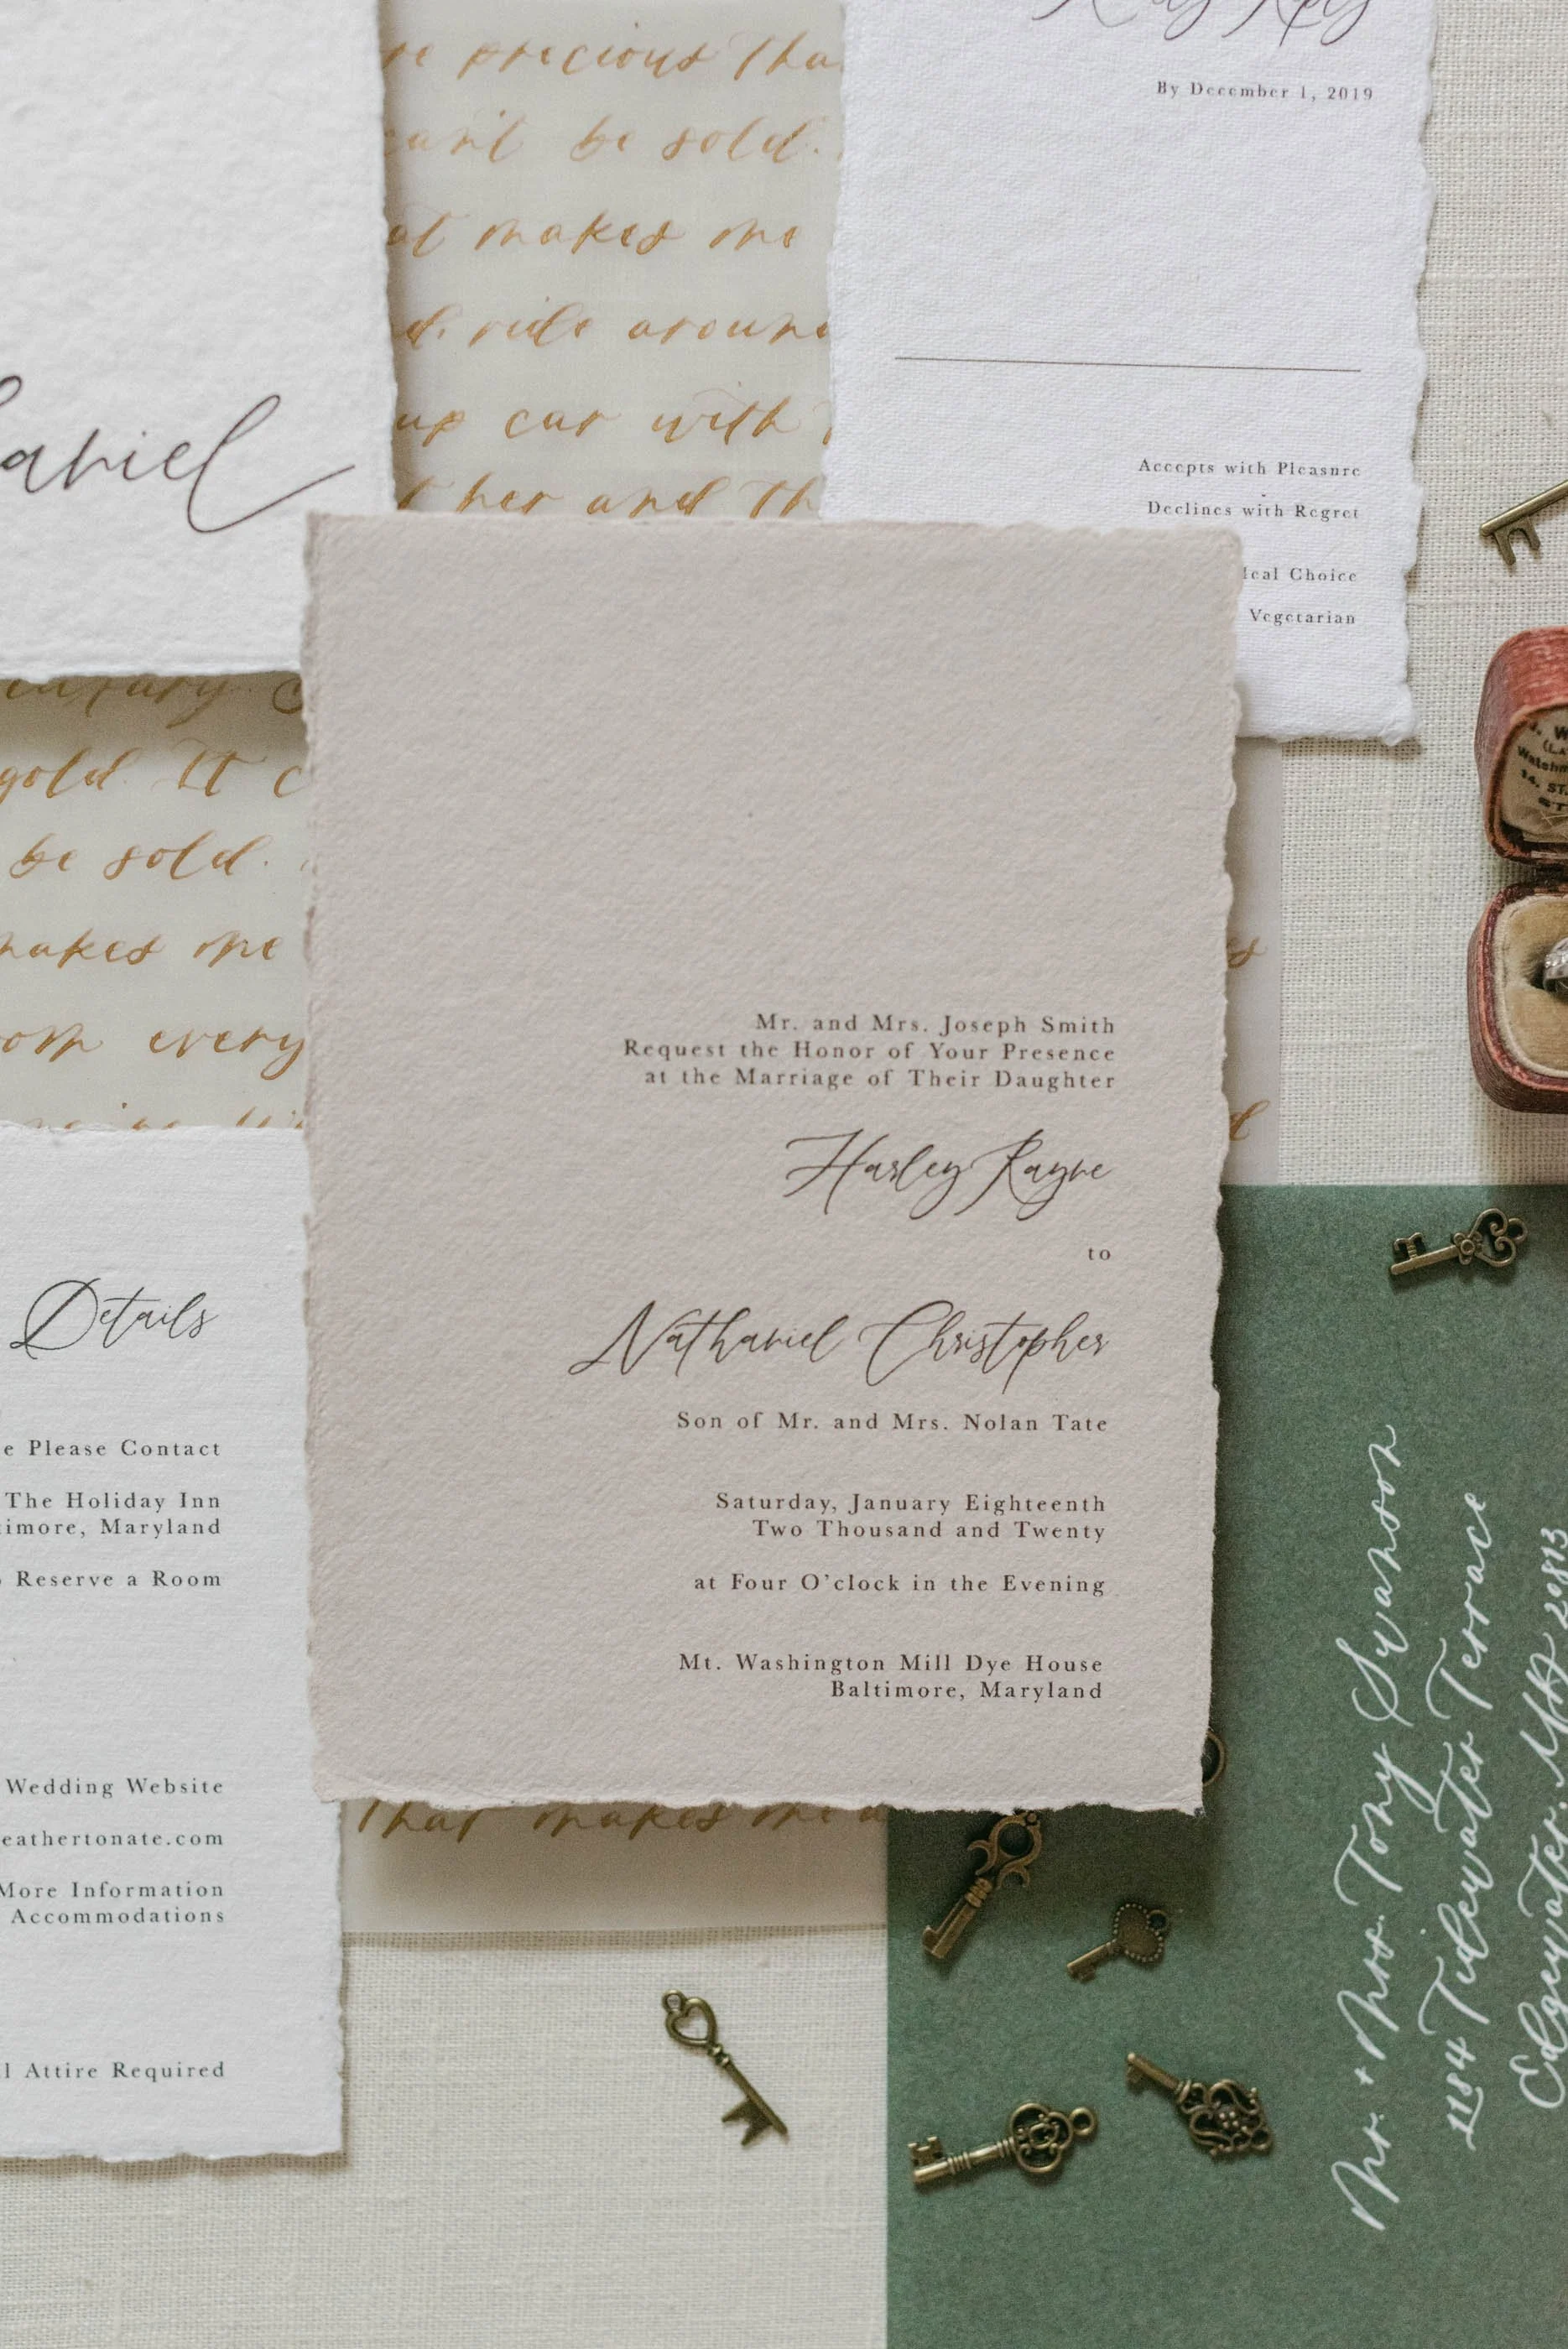 precious
By December 1, 2019
be sold.
makes me
ride
car with
her and
Accepts with Pleasure
Declines with Regret
Choice
Vegetarian
gold. It
be sold.
makes me
every
Mr. and Mrs. Joseph Smith
Request the Honor of Your Presence
at the Marriage of Their Daughter
Harley Rayne
to
Nathaniel Christopher
Son of Mr. and Mrs. Nolan Tate
Saturday, January Eighteenth
Two Thousand and Twenty
at Four O'clock in the Evening
Mt. Washington Mill Dye House
Baltimore, Maryland
Details
Please Contact
The Holiday Inn
Maryland
Reserve a Room
Wedding Website
eathertonate.com
More Information
Accommodations
Attire Required
that makes me a
Mr. + Mrs. Tony Swanson
1184 Tidewater Terrace
Edgewater, MD